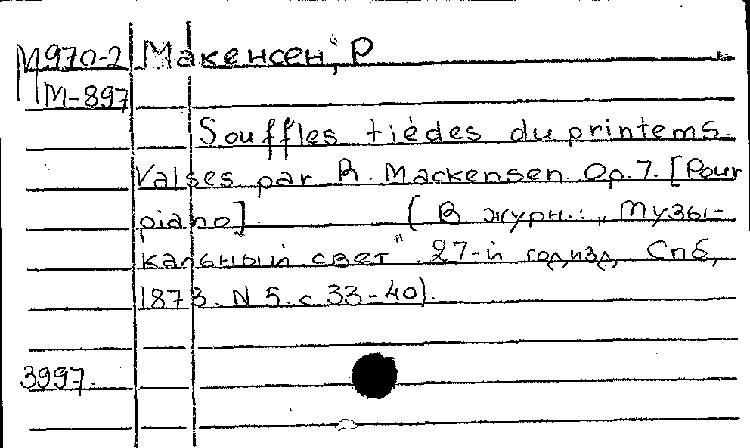 М970-2 Макенсен, Р
М-897
Souffles tièdes du printems.
Valses par R. Mackensen Op. 7. [Pour
piano] (В журн.: „Музы-
кальный свет" 27-й год изд, Спб,
1873. N 5. с 33-40).
3997.